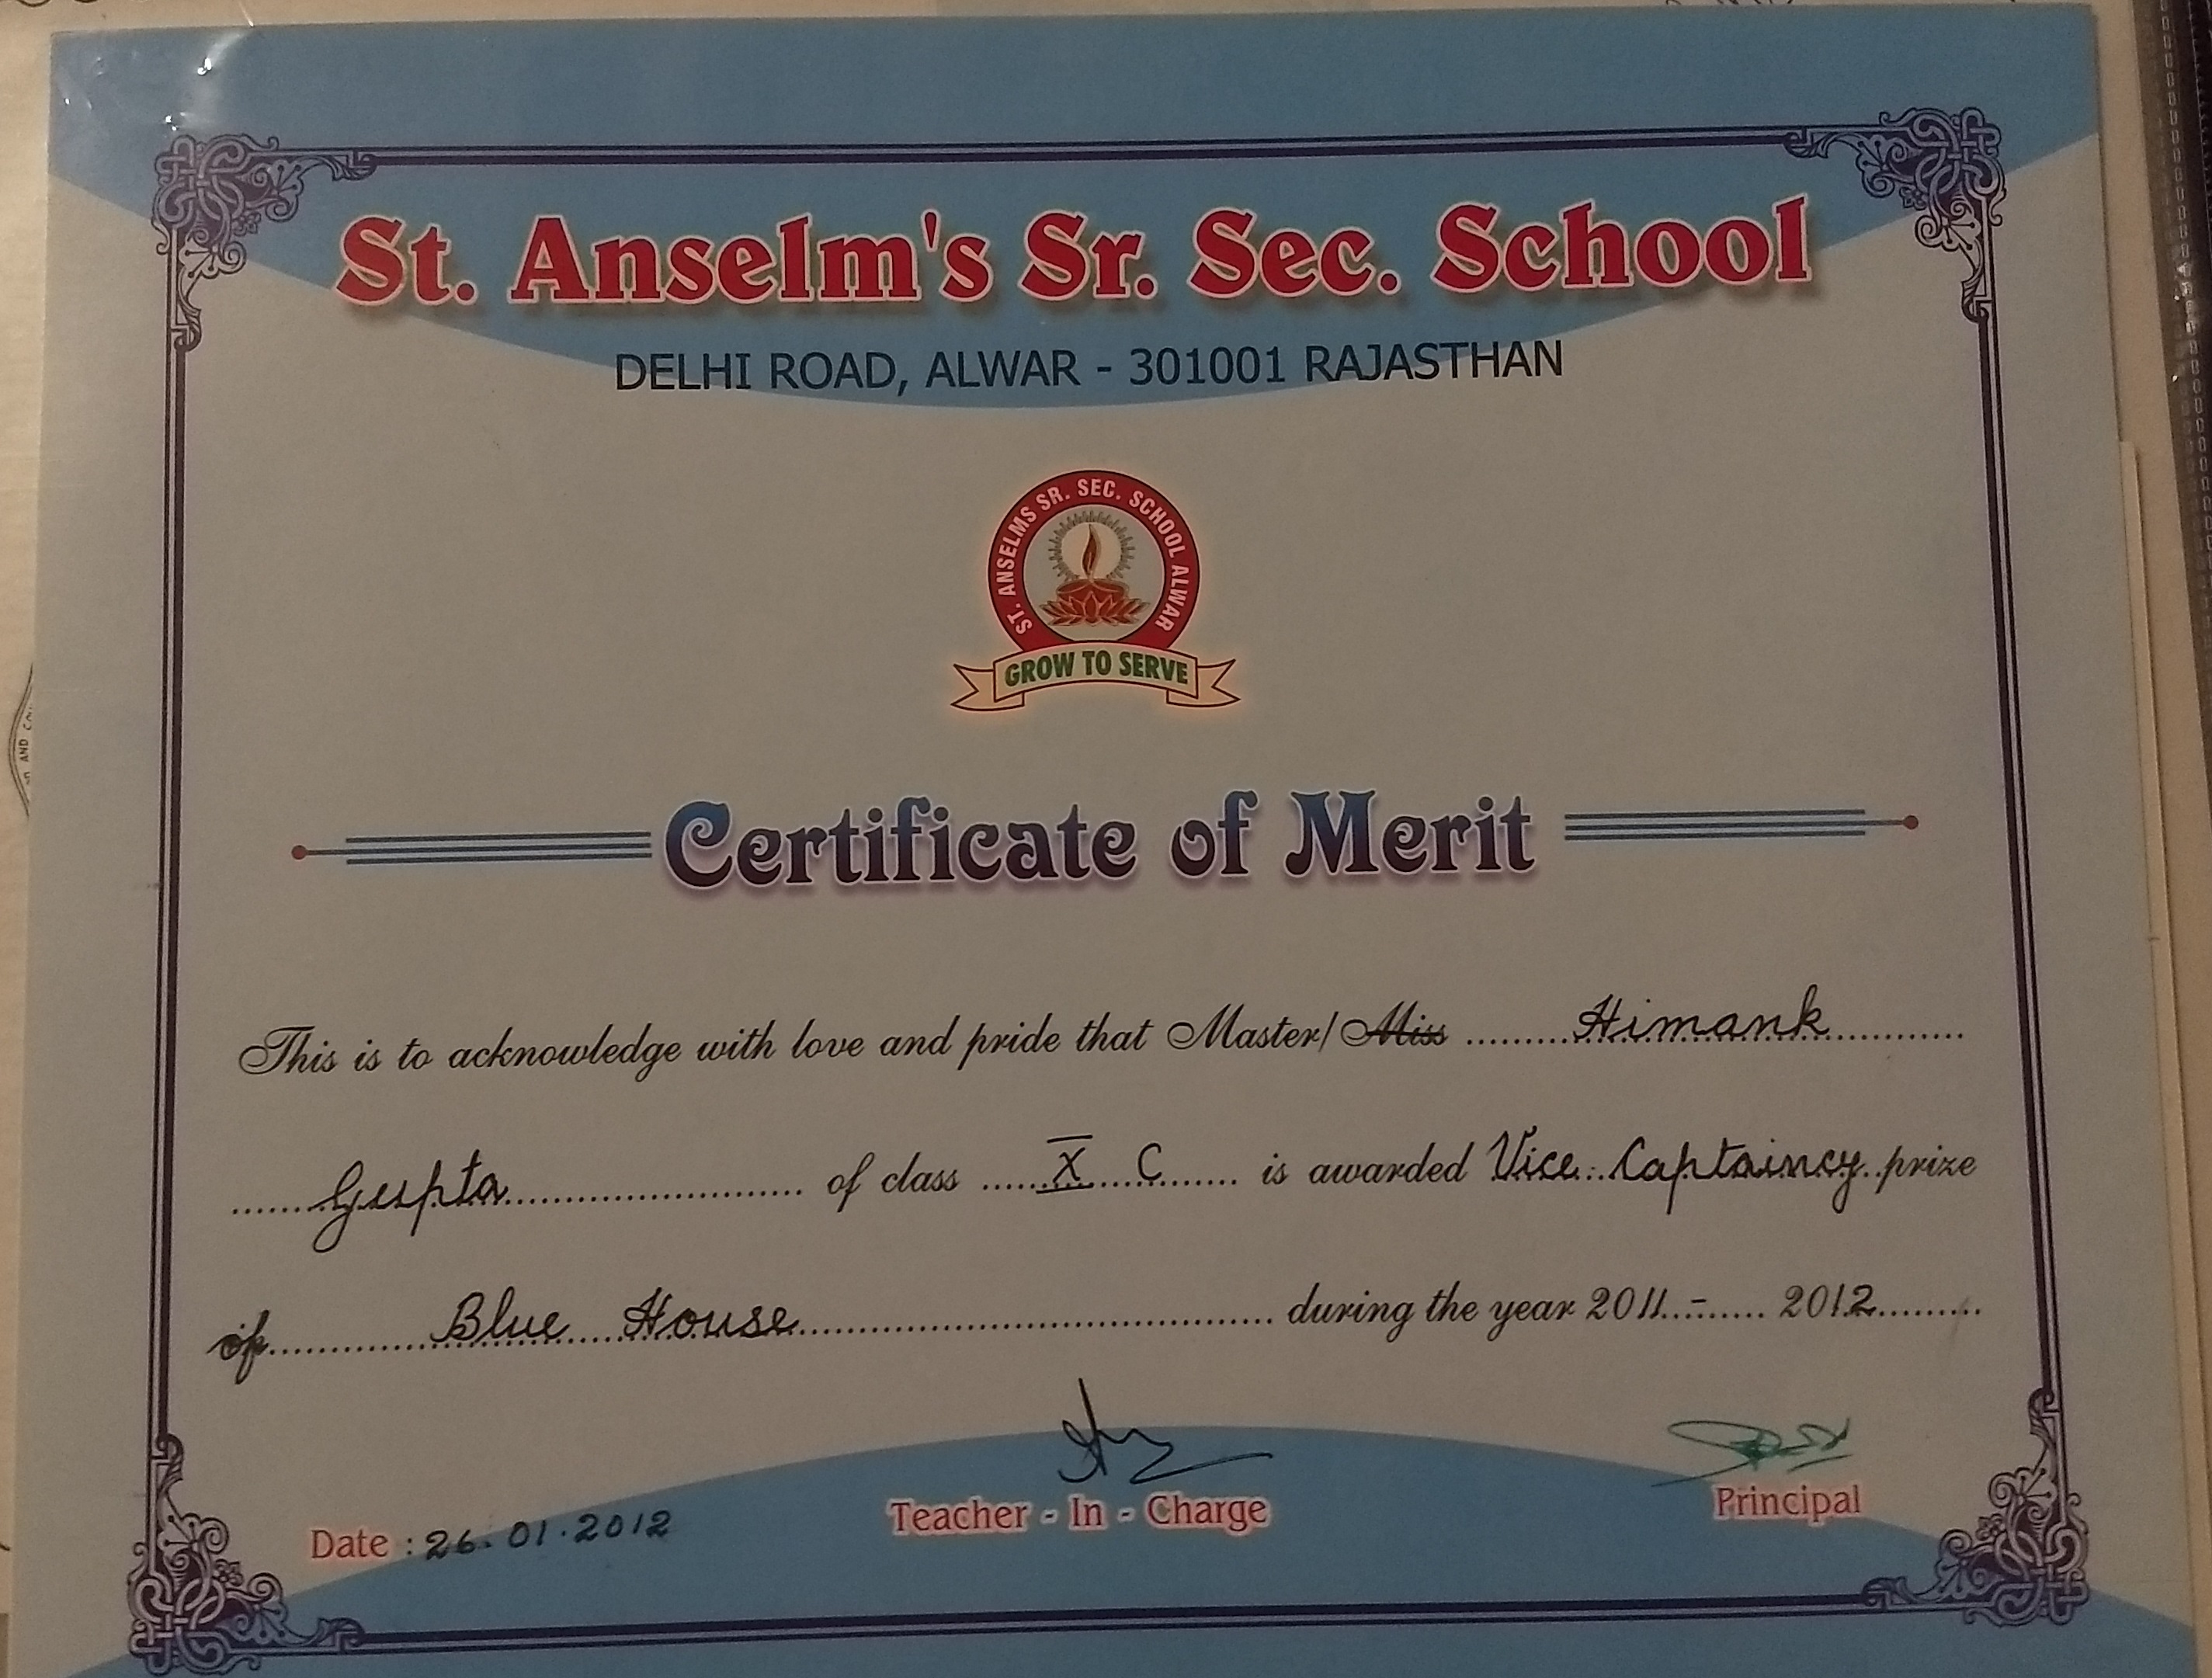 St. Anselm's Sr. Sec. School
DELHI ROAD, ALWAR - 301001 RAJASTHAN
ST. ANSELMS SR. SEC. SCHOOL ALWAR
GROW TO SERVE
Certificate of Merit
This is to acknowledge with love and pride that Master/Miss ........Himank..........
......Gupta...................... of class ......X C...... is awarded Vice Captaincy prize
of..........Blue House.............................. during the year 2011..-..... 2012.........
Date : 26.01.2012
Teacher - In - Charge
Principal
AND